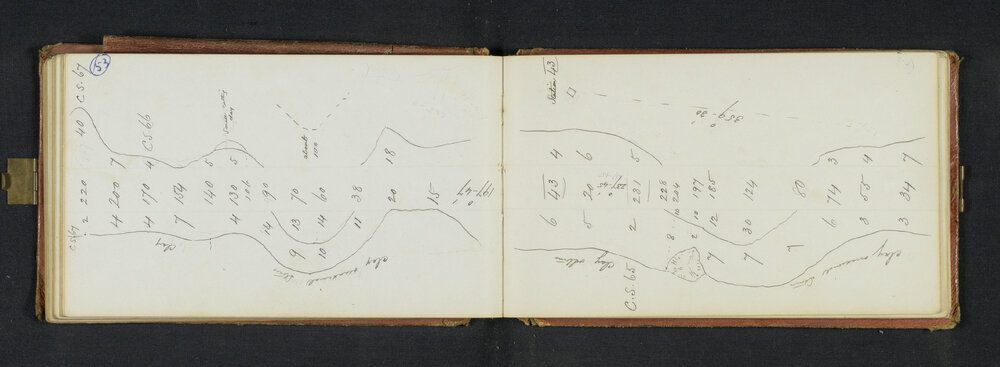 CS67 2 220 40 C.S.67
4 200 7
4 170 4 CS66
clay 7 154
140 5
4 130 5 Small valley clay
106
14 90
9 13 70
10 14 60 about 100
clay 11 38
20 18
15
197°-47'
6 43 4 Station 43
clay 5 20 6
237-45
C.S.65 2 231 5
228
8 10 204
2 10 197
7 12 185 359°-30'
7 30 124
7 80
6 74 3
3 55 4
clay 3 34 7